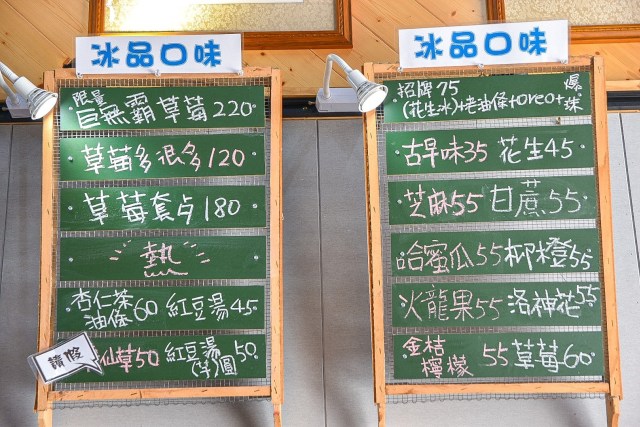 冰品口味
限量
巨無霸草莓220
草莓多很多120
草莓套卢180
熱
杏仁茶
油條60 紅豆湯45
請假
仙草50 紅豆湯(芋)圓50
冰品口味
招牌75
(花生冰)+老油條+oreo+爆珠
古早味35 花生45
芝麻55 甘蔗55
哈蜜瓜55 柳橙55
火龍果55 洛神花55
金桔
檸檬 55 草莓60